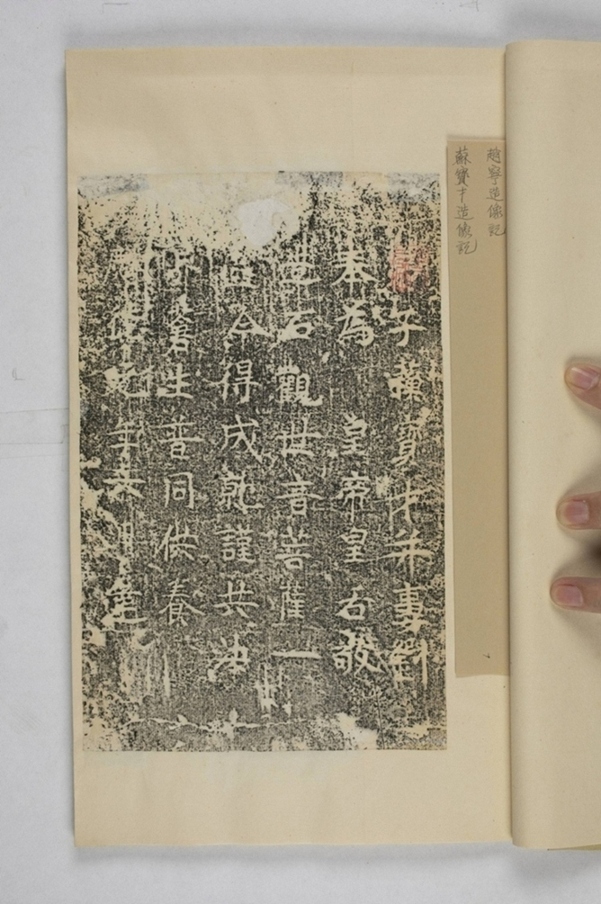 趙寧造像記
蘇寶才造像記
子蘇寶才并妻劉
奉為 皇帝皇后敬
造石觀世音菩薩一
區今得成就謹共法
界蒼生普同供養
元年